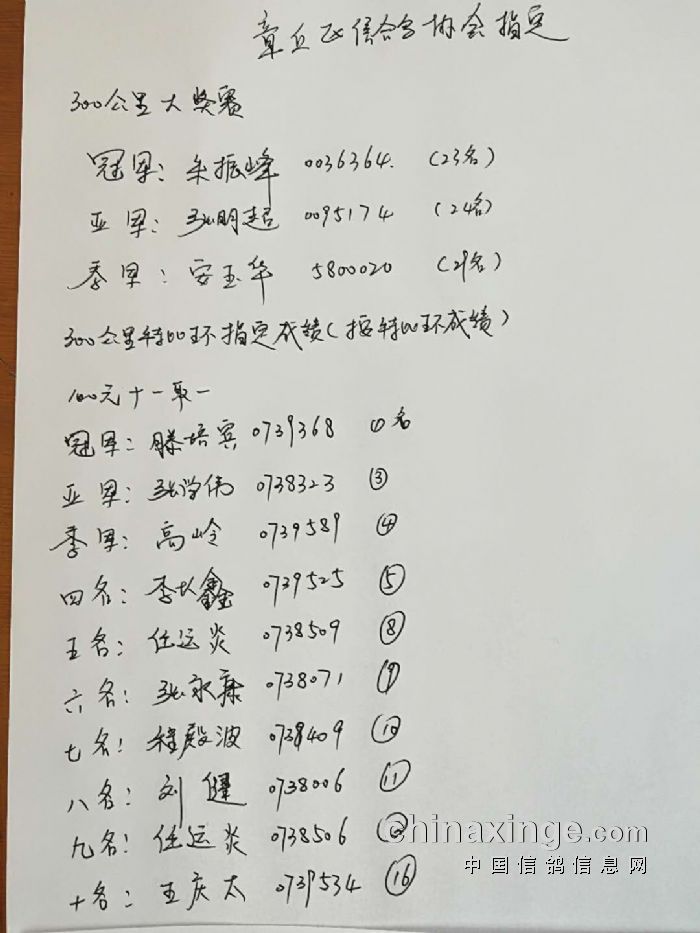 章丘区信鸽协会指定
300公里大奖赛
冠军: 朱振峰 0036364. (23名)
亚军: 张明起 0095174 (24名)
季军: 安玉华 5800020 (29名)
300公里特比环指定成绩(按特比环成绩)
100元十一取一
冠军: 滕培宾 0739368 ①名
亚军: 张学伟 0738323 ③
季军: 高岭 0739589 ④
四名: 李鑫 0739525 ⑤
五名: 任运炎 0738509 ⑧
六名: 张永康 0738071 ⑨
七名: 程殿波 0738409 ⑩
八名: 刘健 0738006 ⑪
九名: 任运炎 0738506
十名: 王庆太 0739534 ⑯
chinaxinge.com
中国信鸽信息网